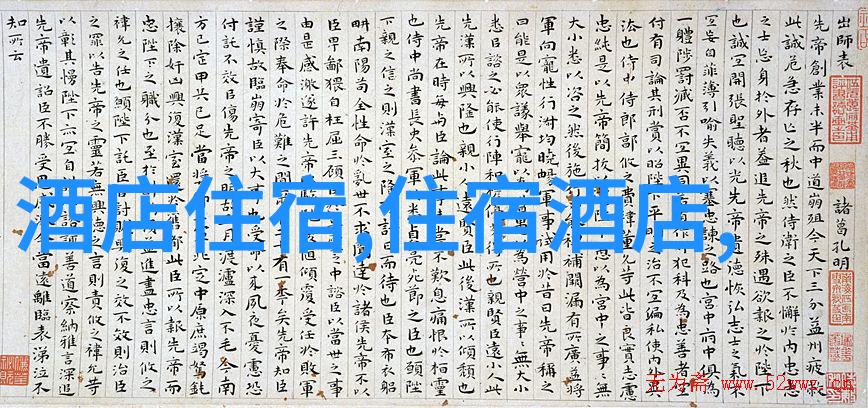 出師表 諸葛孔明
先帝創業未半而中道崩殂今天下三分益州疲敝
此誠危急存亡之秋也然侍衛之臣不懈於內忠志
之士忘身於外者蓋追先帝之殊遇欲報之於陛下
也誠宜開張聖聽以光先帝遺德恢弘志士之氣不
宜妄自菲薄引喻失義以塞忠諫之路也宮中府中俱為
一體陟罰臧否不宜異同若有作奸犯科及為忠善者宜
付有司論其刑賞以昭陛下平明之治不宜偏私使內外異
法也侍中侍郎郭攸之費禕董允等此皆良實志慮
忠純是以先帝簡拔以遺陛下愚以為宮中之事事無
大小悉以咨之然後施行必能裨補闕漏有所廣益將
軍向寵性行淑均曉暢軍事試用於昔日先帝稱之
曰能是以眾議舉寵以為督愚以為營中之事事無大小
悉以諮之必能使行陣和穆優劣得所也親賢臣遠小人此
先漢所以興隆也親小人遠賢臣此後漢所以傾頹也
先帝在時每與臣論此事未嘗不歎息痛恨於桓靈
也侍中尚書長史參軍此悉貞亮死節之臣也願陛
下親之信之則漢室之隆可計日而待也臣本布衣躬
耕南陽苟全性命於亂世不求聞達於諸侯先帝不以
臣卑鄙猥自枉屈三顧臣之中諮臣以當世之事
由是感激遂許先帝傾覆受任於敗軍
之際奉命於危難之間有一年矣先帝知臣
謹慎故臨崩寄臣以大事也受命以來夙夜憂慮恐
付託不效以傷先帝之明故五月渡瀘深入不毛今南
方已定甲兵已足當北定中原庶竭駑鈍
攘除奸凶興復漢室還於舊都此臣所以報先帝而
忠陛下之職分也至於進盡忠言則攸之
禕允之任也願陛下託臣以討賊興復之效不效則治臣
之罪以告先帝之靈若無興德之言則責攸之禕允等
以彰其慢陛下亦宜自諮諏善道察納雅言深追
先帝遺詔臣不勝受恩感激今當遠離臨表涕泣不
知所云
酒店住宿,住宿酒店,
无为斋 www.52wwz.cn